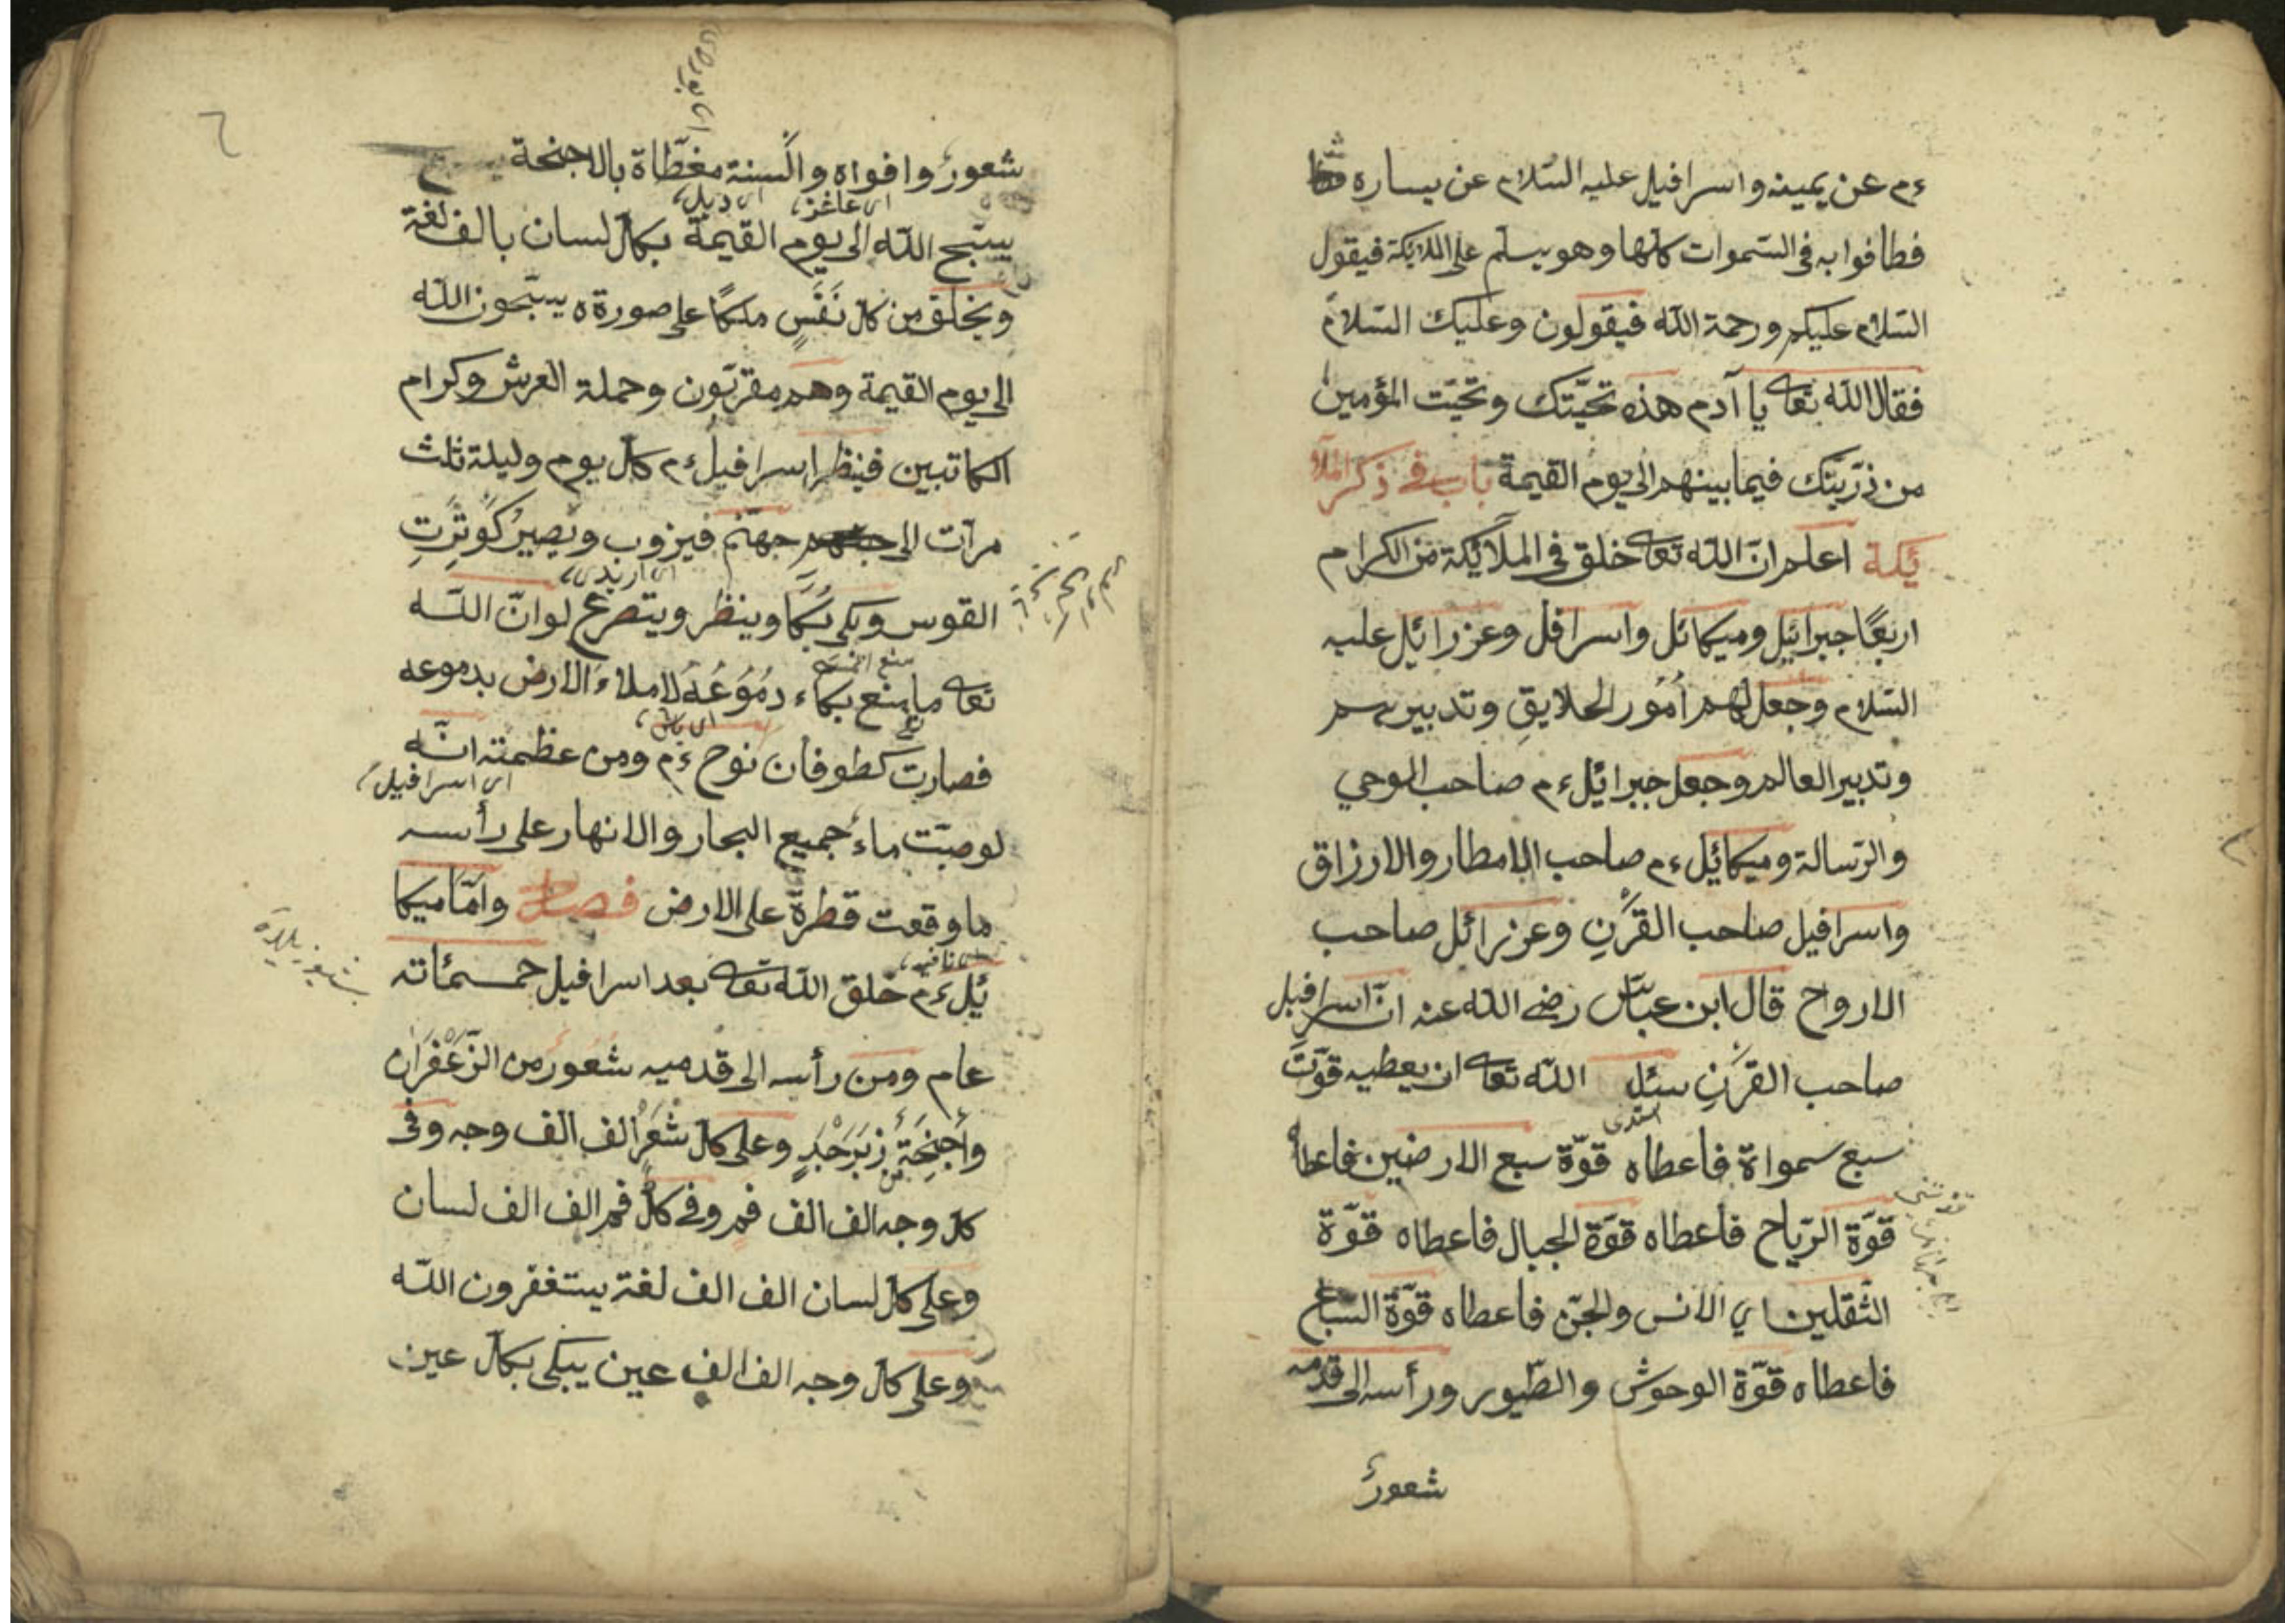 ءم عن يمينه واسرافيل عليه السّلام عن يساره
فطافوا به فى السّموات كلها وهو يسلم على الملايكة فيقول
السّلام عليكم ورحمة اللّه فيقولون وعليك السّلام
فقال اللّه تعا يا آدم هذه تحيّتك وتحيّت المؤمين
من ذرّيّتك فيما بينهم الى يوم القيمة باب فى ذكر الملآ
ئكة اعلم انّ اللّه تعا خلق فى الملآئكة من الكرام
اربعًا جبرائيل وميكائل واسرافل وعزرائيل عليه
السّلام وجعل لهم اُمُور الحلايقِ وتدبيرهم
وتدبير العالم وجعل جبرائيل ءم صاحب الوحي
والرّسالة وميكائيل ءم صاحب الامطار والارزاق
واسرافيل صاحب القَرْنِ وعزرائل صاحب
الارواح قال ابن عبّاس رضى اللّه عنه انّ اسرافيل
صاحب القَرْنِ سئل اللّه تعا ان يعطيه قوّت
استدى
سبع سمواة فاعطاه قوّة سبع الارضين فاعطاه
قوّة الرّياح فاعطاه قوّة الجبال فاعطاه قوّة
الثّقلين اي الانس والجنّ فاعطاه قوّة السّباع
فاعطاه قوّة الوحوش والطّيور ورأسه الى قدمه
شعورٌ
٦
شعورٌ وافواه والْسنة مغطّاة بالاجنحة
يسبّح اللّه الى يوم القيمة بكلّ لسان بالف لغة
ويخلق من كلّ نَفَسٍ ملكًا على صورة ه يسبّحون اللّه
الى يوم القيمة وهم مقرّبون وحملة العرش وكرام
الكاتبين فينظر اسرافيلُ ءم كلّ يوم وليلة ثلث
مرآت الى جهنّم فيزوب ويصيرُ كَوَتَرِ
القوس ويبكى بُكًا وينظر ويتضرع لو انّ اللّه
تعا ما منع بكاء دُمُوعُهُ لاملاء الارض بدموعه
فصارت كطوفان نوح ءم ومن عظمته انّه
اى اسرافيل
لو صبّت ماءُ جميع البحار والانهار على رأسه
ما وقعت قطرة على الارض فصل وامّا ميكا
ئيل ءم خلق اللّه تعا بعد اسرافيل خمسمائة
عام ومن رأسه الى قدميه شعور من الزّعْفَران
واَجْنِحَةٌ من زَبَرْجَدٍ وعلى كلّ شَعْرٍ الف الف وجه وفى
كلّ وجه الف الف فم وفى كلّ فم الف الف لسان
وعلى كلّ لسان الف الف لغة يستغفرون اللّه
وعلى كلّ وجه الف الف عين يبكى بكلّ عين